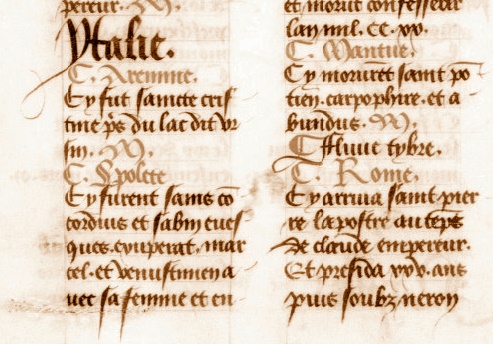 pereur. M.
Ytalie.
C. Aremine.
Cy fut saincte cris
tine p̄s du lac dit vr
sin. M.
C. Spolete
Cy furent sains cō
cordius et sabin eues
ques. exuperat. mar
cel. et venustinien a
uec sa femme et en
et morut confesseur
lan mil. CC. xv.
C. Mantue.
Cy morurēt saint po
tien. carpophire. et a
bundus. M.
C Fluuie tybre.
C. Rome.
Cy arriua saint pier
re lapostre au tēps
de claude empereur.
Et presida xxv. ans
puis soubz neron